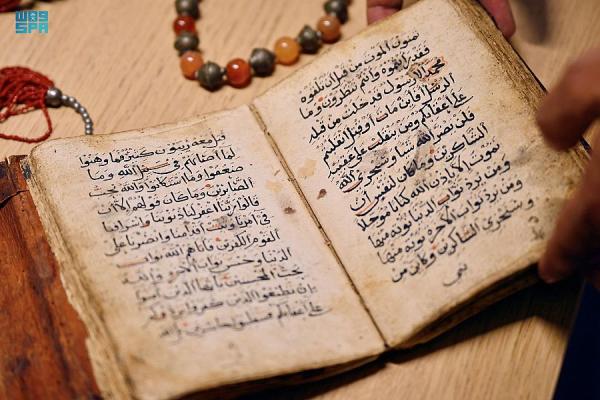 واس
SPA
تمنون الموت من قبل ان تلقوه
فقد رأيتموه وانتم تنظرون وما
محمد الا رسول قد خلت من قبله
الرسل افاين مات او قتل انقلبتم
على اعقابكم ومن ينقلب على عقبيه
فلن يضر الله شيا وسيجزي الله
الشاكرين وما كان لنفس ان
تموت الا باذن الله كتابا موجلا
ومن يرد ثواب الدنيا نوته منها
ومن يرد ثواب الاخرة نوته منها
وسنجزي الشاكرين وكاين من
نبي
قتل معه ربيون كثير فما وهنوا
لما اصابهم في سبيل الله وما
ضعفوا وما استكانوا والله يحب
الصابرين وما كان قولهم الا ان
قالوا ربنا اغفر لنا ذنوبنا واسرافنا
في امرنا وثبت اقدامنا وانصرنا على
القوم الكافرين فاتاهم الله ثواب
الدنيا وحسن ثواب الاخرة والله
يحب المحسنين يا ايها الذين امنوا
ان تطيعوا الذين كفروا يردوكم
على اعقابكم فتنقلبوا خاسرين بل الله